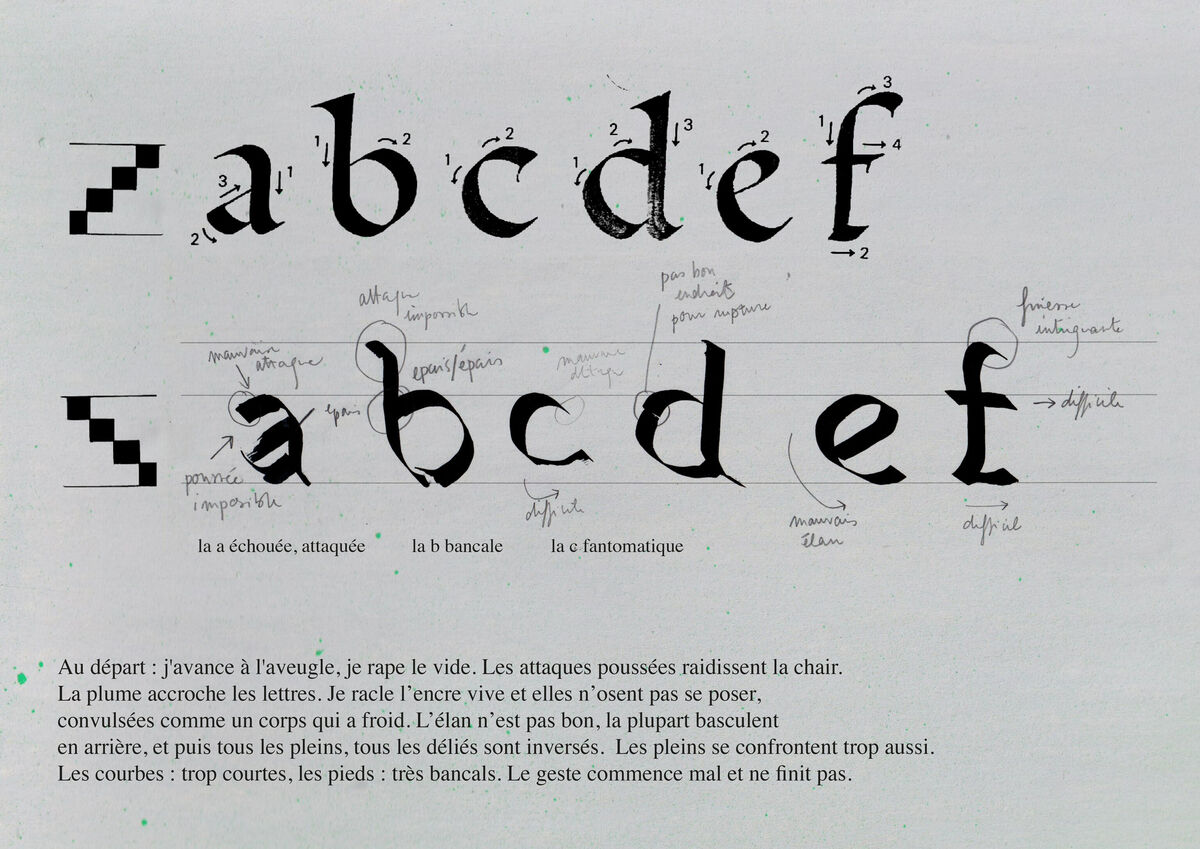 a b c d e f
3 1 2
1 2
1 2
1 2 3
1 2
1 2 3 4
attaque
impossible
pas bon
endroits
pour rupture
finesse
intrigante
mauvaise
attaque
epais/épais
mauvaise
attaque
epais
→ difficile
a b c d e f
poussée
impossible
difficile
mauvais
élan
difficil
la a échouée, attaquée
la b bancale
la c fantomatique
Au départ : j'avance à l'aveugle, je rape le vide. Les attaques poussées raidissent la chair.
La plume accroche les lettres. Je racle l’encre vive et elles n’osent pas se poser,
convulsées comme un corps qui a froid. L’élan n’est pas bon, la plupart basculent
en arrière, et puis tous les pleins, tous les déliés sont inversés. Les pleins se confrontent trop aussi.
Les courbes : trop courtes, les pieds : très bancals. Le geste commence mal et ne finit pas.